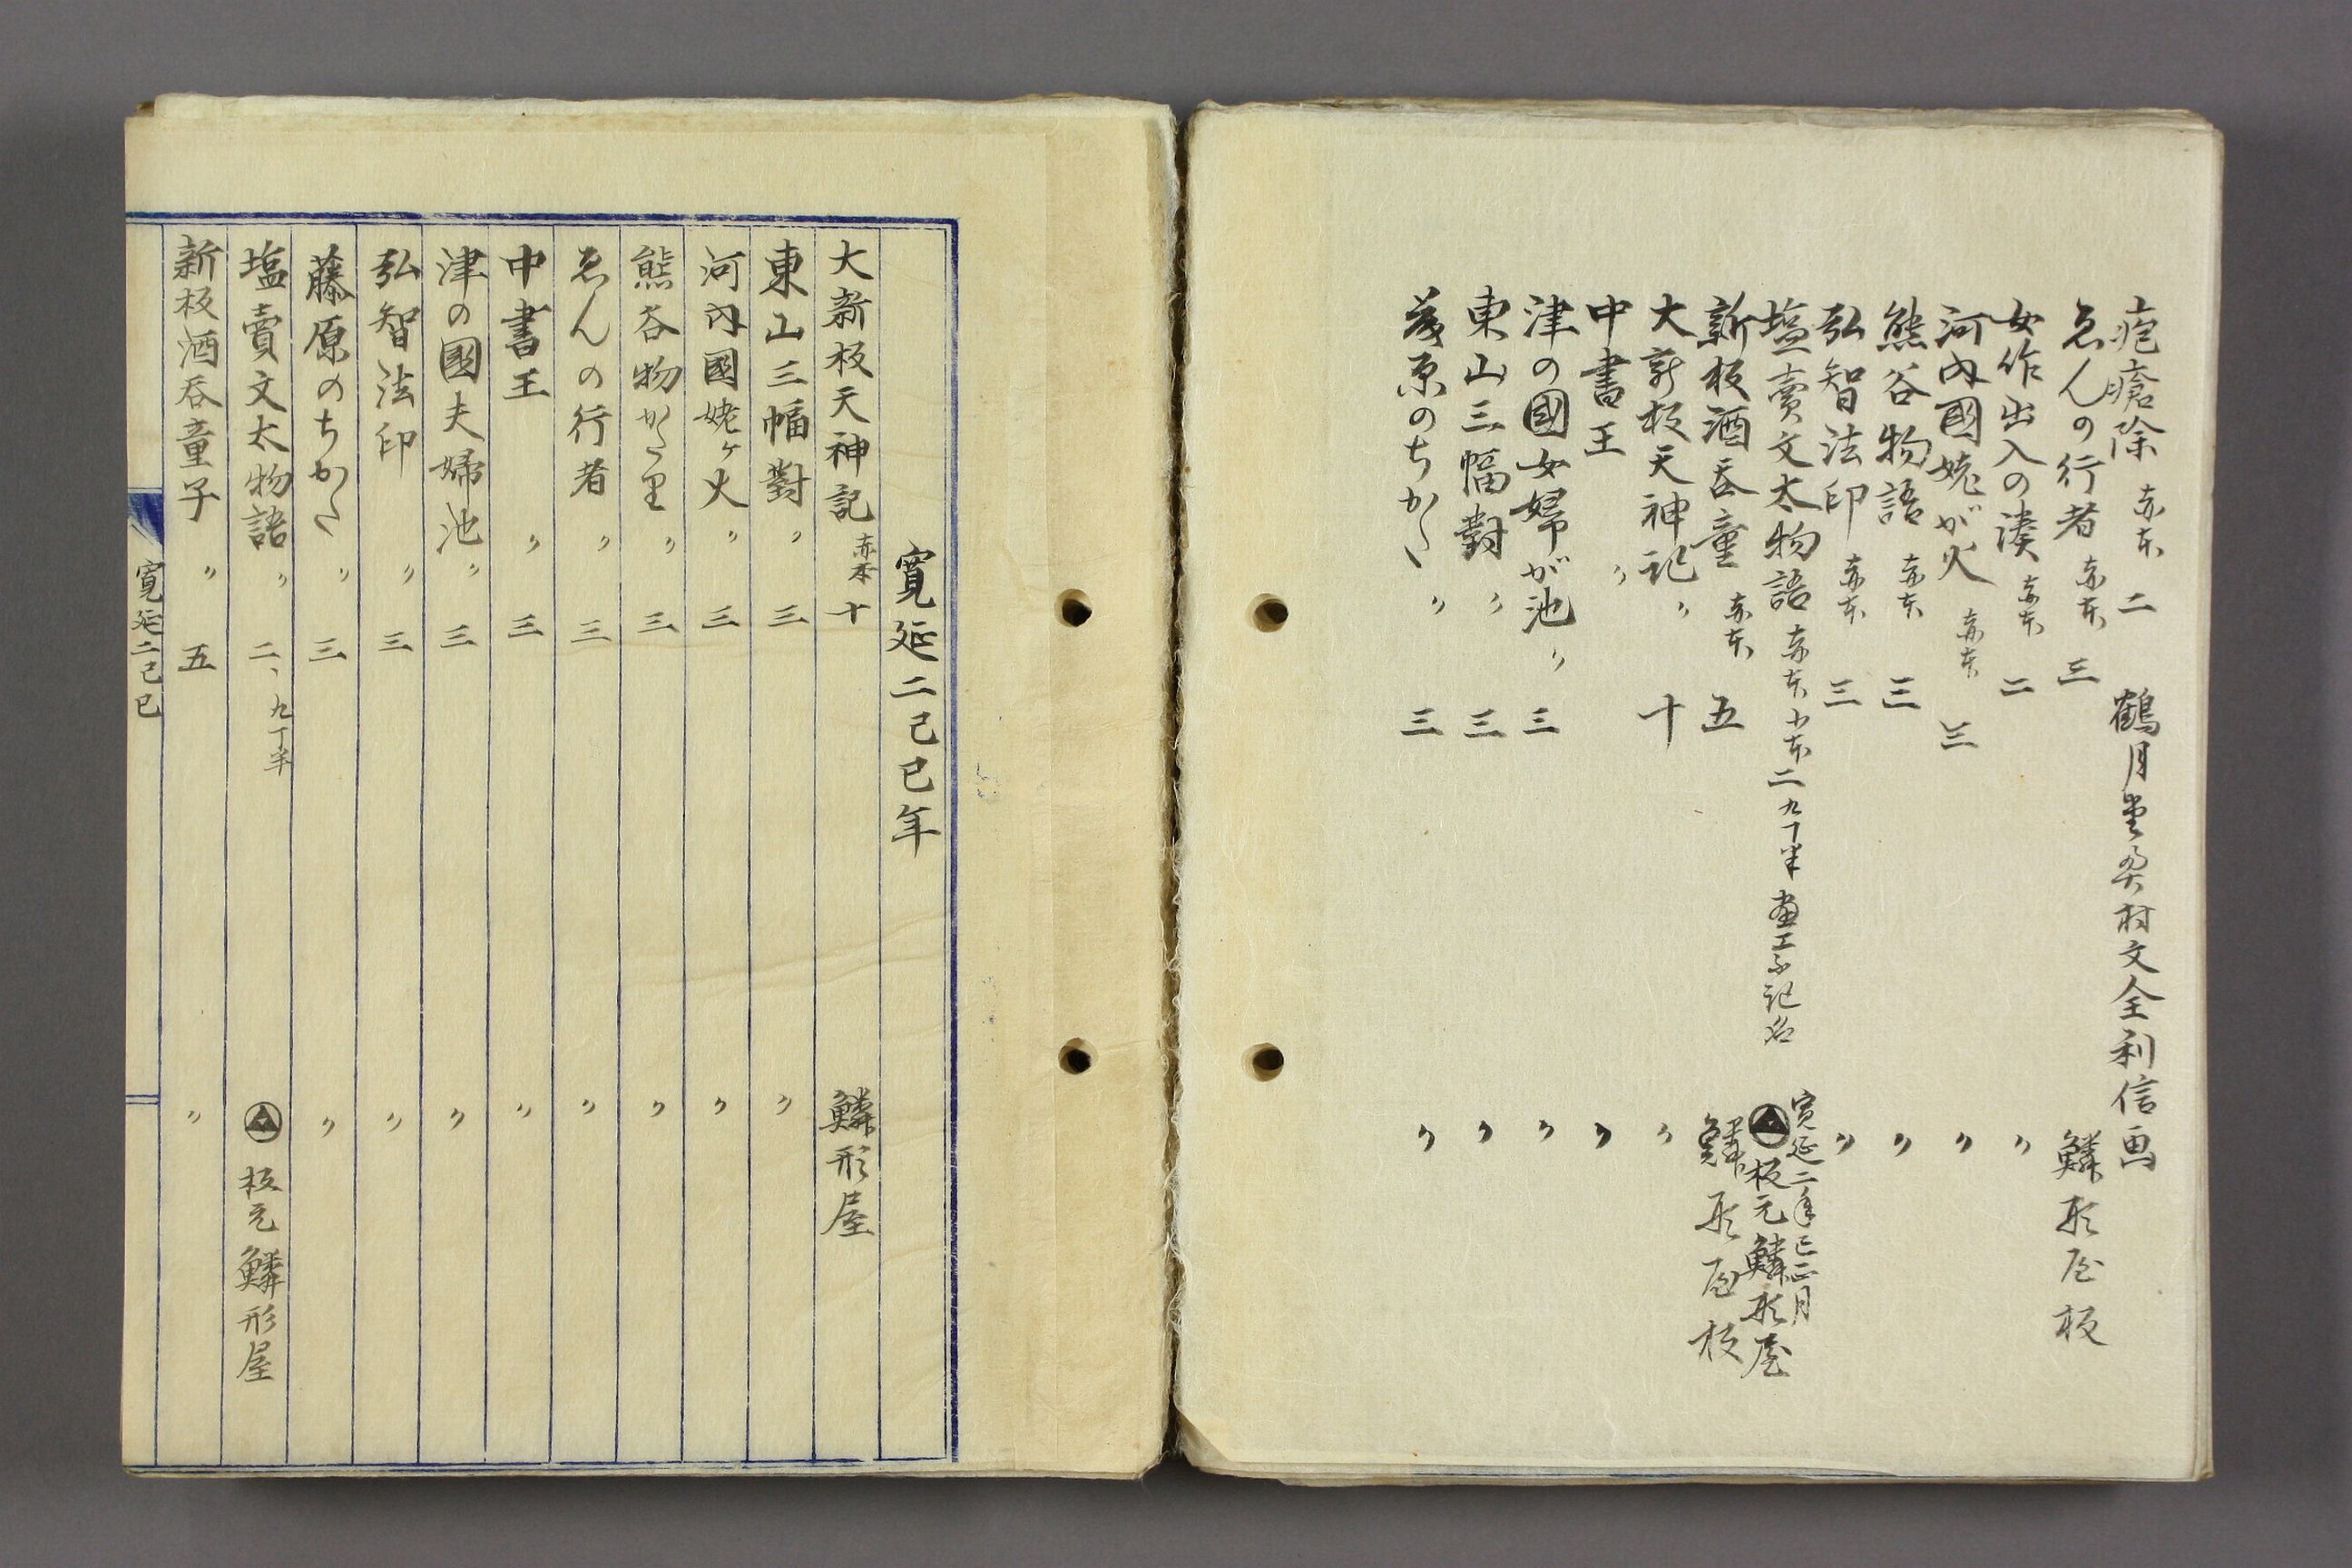 疱瘡除 赤本 二 鶴月堂奥村文全利信画
ゑんの行者 赤本 三 鱗形屋板
女作出入の湊 赤本 二 〃
河内國姥が火 赤本 三 〃
熊谷物語 赤本 三 〃
弘智法印 赤本 三 〃
塩賣文太物語 赤本 小本 二 九丁半 画工不記名 寛延二年巳正月 板元鱗形屋
新板酒呑童 赤本 五 鱗形屋板
大新板天神記 〃 十 〃
中書王 〃 〃
津の國女婦が池 〃 三 〃
東山三幅對 〃 三 〃
藤原のちかた 〃 三 〃
寛延二己巳年
大新板天神記 赤本 十 鱗形屋
東山三幅對 〃 三 〃
河内國姥ヶ火 〃 三 〃
熊谷物がたり 〃 三 〃
ゑんの行者 〃 三 〃
中書王 〃 三 〃
津の國夫婦池 〃 三 〃
弘智法印 〃 三 〃
藤原のちかた 〃 三 〃
塩賣文太物語 〃 二、九丁半 板元鱗形屋
新板酒呑童子 〃 五 〃
寛延二己巳